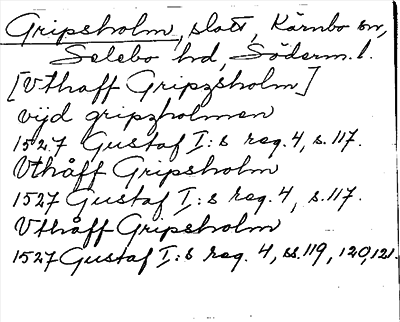 Gripsholm, slott, Kärnbo sn,
Selebo hd, Söderm. l.
[Vthaff Gripzsholm]
vijd gripzholmen
1527 Gustaf I:s reg. 4, s. 117.
Vthåff Gripsholm
1527 Gustaf I:s reg. 4, s. 117.
Vthåff Gripsholm
1527 Gustaf I:s reg. 4, ss. 119, 120, 121.